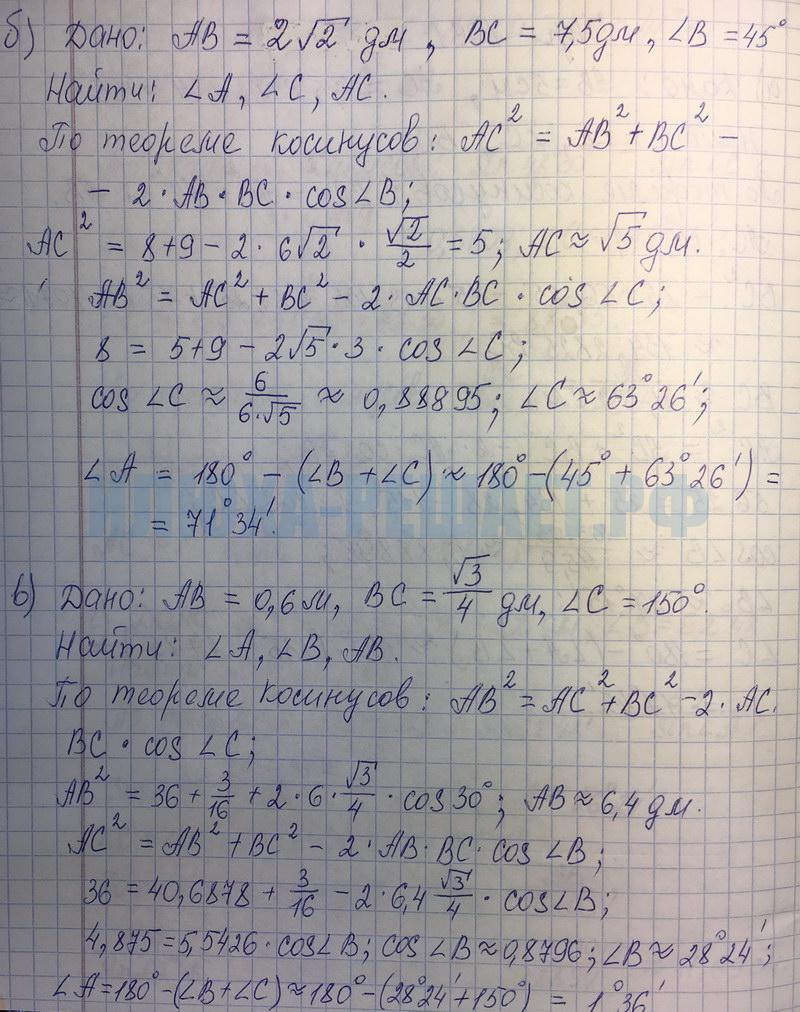 б) Дано: AB = 2√2 дм, BC = 7,5дм, ∠B = 45°
Найти: ∠A, ∠C, AC.
По теореме косинусов: AC² = AB² + BC² –
– 2 · AB · BC · cos∠B;
AC² = 8+9 – 2 · 6√2 · √2/2 = 5; AC ≈ √5 дм.
AB² = AC² + BC² – 2 · AC · BC · cos ∠C;
8 = 5+9 – 2√5 · 3 · cos ∠C;
cos ∠C ≈ 6/(6·√5) ≈ 0,88895; ∠C ≈ 63°26';
∠A = 180° – (∠B + ∠C) ≈ 180° – (45° + 63°26') =
= 71°34'.
ИЛЮХА-РЕШАЕТ.РФ
в) Дано: AB = 0,6 м, BC = √3/4 дм, ∠C = 150°.
Найти: ∠A, ∠B, AB.
По теореме косинусов: AB² = AC² + BC² – 2 · AC ·
BC · cos ∠C;
AB² = 36 + 3/16 + 2 · 6 · √3/4 · cos 30°; AB ≈ 6,4 дм.
AC² = AB² + BC² – 2 · AB · BC · cos ∠B;
36 = 40,6878 + 3/16 – 2 · 6,4 √3/4 · cos∠B;
4,875 = 5,5426 · cos∠B; cos ∠B ≈ 0,8796; ∠B ≈ 28°24';
∠A = 180° – (∠B + ∠C) ≈ 180° – (28°24' + 150°) = 1°36'